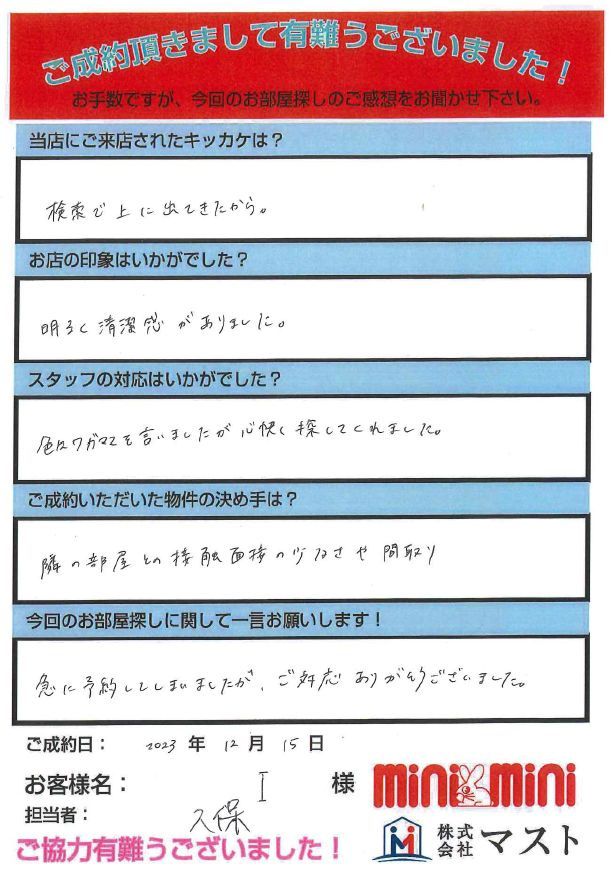 ご成約頂きまして有難うございました！
お手数ですが、今回のお部屋探しのご感想をお聞かせ下さい。
当店にご来店されたキッカケは？
検索で上に出てきたから。
お店の印象はいかがでした？
明るく清潔感がありました。
スタッフの対応はいかがでした？
色々ワガママを言いましたが心快く探してくれました。
ご成約いただいた物件の決め手は？
隣の部屋との接触面接の少なさや間取り
今回のお部屋探しに関して一言お願いします！
急に予約してしまいましたが、ご対応ありがとうございました。
ご成約日： 2023 年 12 月 15 日
お客様名： I 様
担当者： 久保
ご協力有難うございました！
mini mini
株式会社 マスト